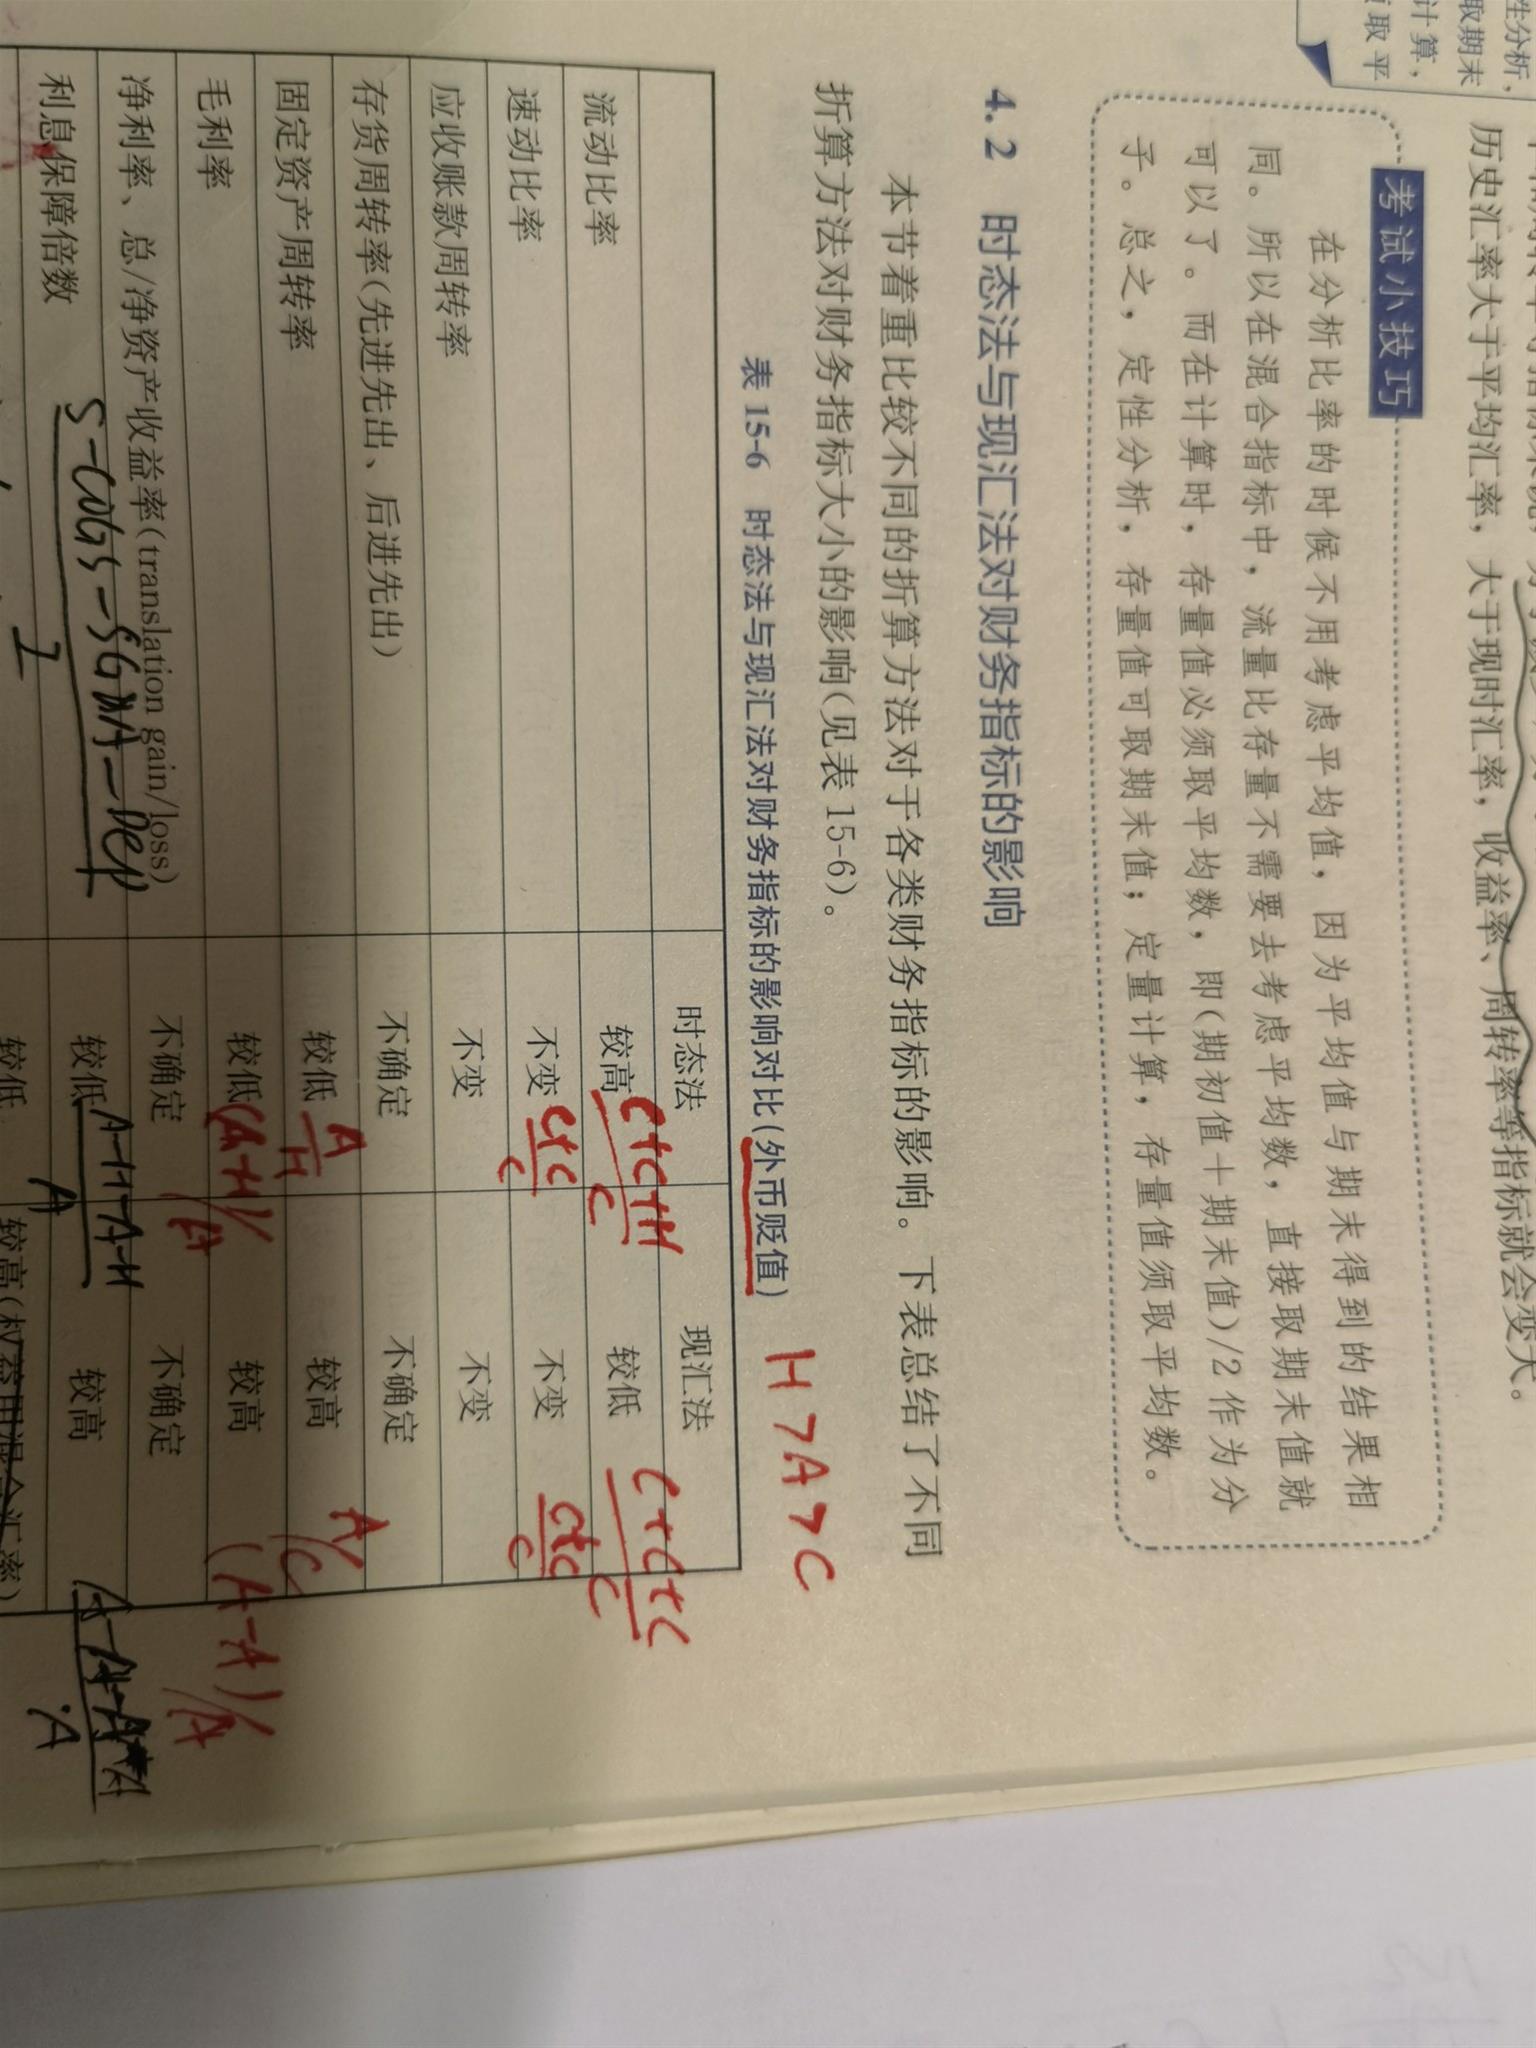 性分析，
取期末
计算，
取平
历史汇率大于平均汇率，大于现时汇率，收益率、周转率等指标就会变大。
考试小技巧
在分析比率的时候不用考虑平均值，因为平均值与期末得到的结果相
同。所以在混合指标中，流量比存量不需要去考虑平均数，直接取期末值就
可以了。而在计算时，存量值必须取平均数，即(期初值+期末值)/2作为分
子。总之，定性分析，存量值可取期末值；定量计算，存量值须取平均数。
4.2 时态法与现汇法对财务指标的影响
本节着重比较不同的折算方法对于各类财务指标的影响。下表总结了不同
折算方法对财务指标大小的影响(见表 15-6)。
表 15-6 时态法与现汇法对财务指标的影响对比(外币贬值) H>A>C
时态法 现汇法
流动比率 较高 C+C+H/C 较低 C+C+C/C
速动比率 不变 C+C/C 不变 C+C/C
应收账款周转率 不变 不变
存货周转率(先进先出、后进先出) 不确定 不确定
固定资产周转率 较低 A/H 较高 A/C
毛利率 较低 (A-H)/A 较高 (A-A)/A
净利率、总/净资产收益率(translation gain/loss) 不确定 不确定
利息保障倍数 S-COGS-SG&A-Dep/I 较低 A-H-A-H/A 较高
较低 较高(权益用混合汇率)